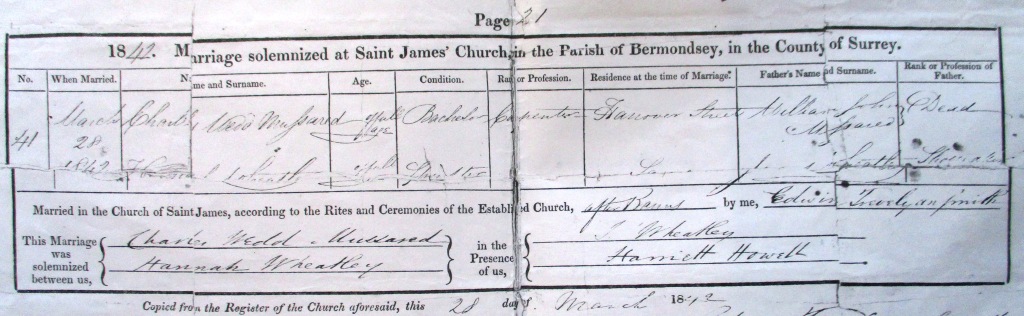 Page 21
1842. Marriage solemnized at Saint James' Church, in the Parish of Bermondsey, in the County of Surrey.
No. When Married. Name and Surname. Age. Condition. Rank or Profession. Residence at the time of Marriage. Father's Name and Surname. Rank or Profession of Father.
41 March 28 1842 Charles Wedd Mussared Full Age Bachelor Carpenter Hanover Street William John Mussared Dead
Full Spinster
Married in the Church of Saint James, according to the Rites and Ceremonies of the Established Church, after Banns by me, Edwin Trevelyan Smith
This Marriage was solemnized between us, Charles Wedd Mussared Hannah Wheatley in the Presence of us, J Wheatley Harriett Howell
Copied from the Register of the Church aforesaid, this 28 day of March 1842